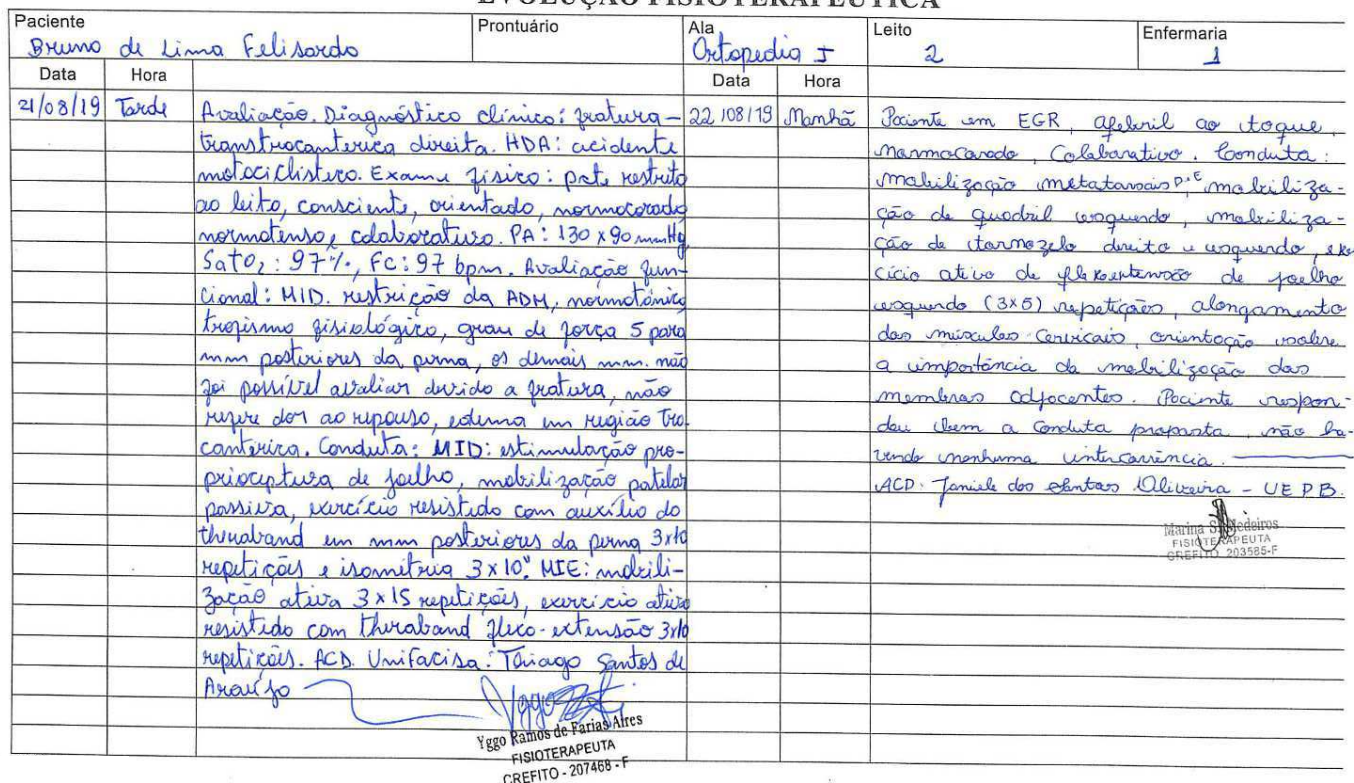 EVOLUÇÃO FISIOTERAPÊUTICA
Paciente
Bruno de Lima Felisardo
Prontuário
Ala
Ortopedia I
Leito
2
Enfermaria
1
Data
Hora
21/08/19 Tarde
Avaliação. Diagnóstico clínico: fratura-
transtrocanterica direita. HDA: acidente
motociclistico. Exame físico: pcte restrito
ao leito, consciente, orientado, normocorado
normotenso, colaborativo. PA: 130 x 90 mmHg
SatO2: 97%, FC: 97 bpm. Avaliação fun-
cional: MID. restrição da ADM, normotônico
trofismo fisiológico, grau de força 5 para
mm posteriores da perna, os demais mm. não
foi possível avaliar devido a fratura, não
refere dor ao repouso, edema em região tro-
cantérica. Conduta: MID: estimulação pro-
prioceptura de joelho, mobilização patelar
passiva, exercício resistido com auxílio do
theraband em mm posteriores da perna 3x10
repetições e isometria 3x10". MIE: mobili-
zação ativa 3x15 repetições, exercício ativo
resistido com theraband flexo-extensão 3x10
repetições. ACD. Unifacisa: Thiago Santos de
Araújo
Yggo Ramos de Farias Aires
FISIOTERAPEUTA
CREFITO - 207468 - F
Data
Hora
22/08/19 Manhã
Paciente em EGR, afebril ao toque,
normocorado, Colaborativo. Conduta:
mobilização metatarsais D·E mobiliza-
ção de quadril esquerdo, mobiliza-
ção de tornozelo direito e esquerdo, exer
cício ativo de flexoextensão de joelho
esquerdo (3x5) repetições, alongamento
dos músculos cervicais, orientação sobre
a importância da mobilização dos
membros adjacentes. Paciente respon-
deu bem a conduta proposta, não ha-
vendo nenhuma intercorrência.
ACD: dos Santos Oliveira - UEPB.
Marina S. Medeiros
FISIOTERAPEUTA
CREFITO 203585-F